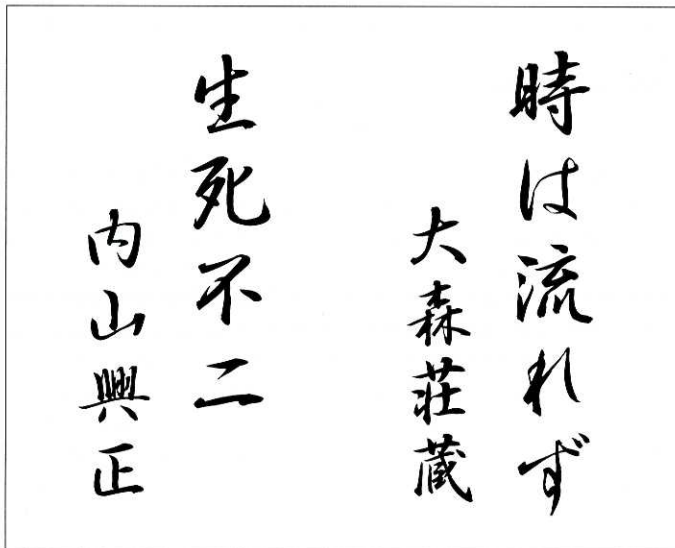 時は流れず
大森荘蔵
生死不二
内山興正